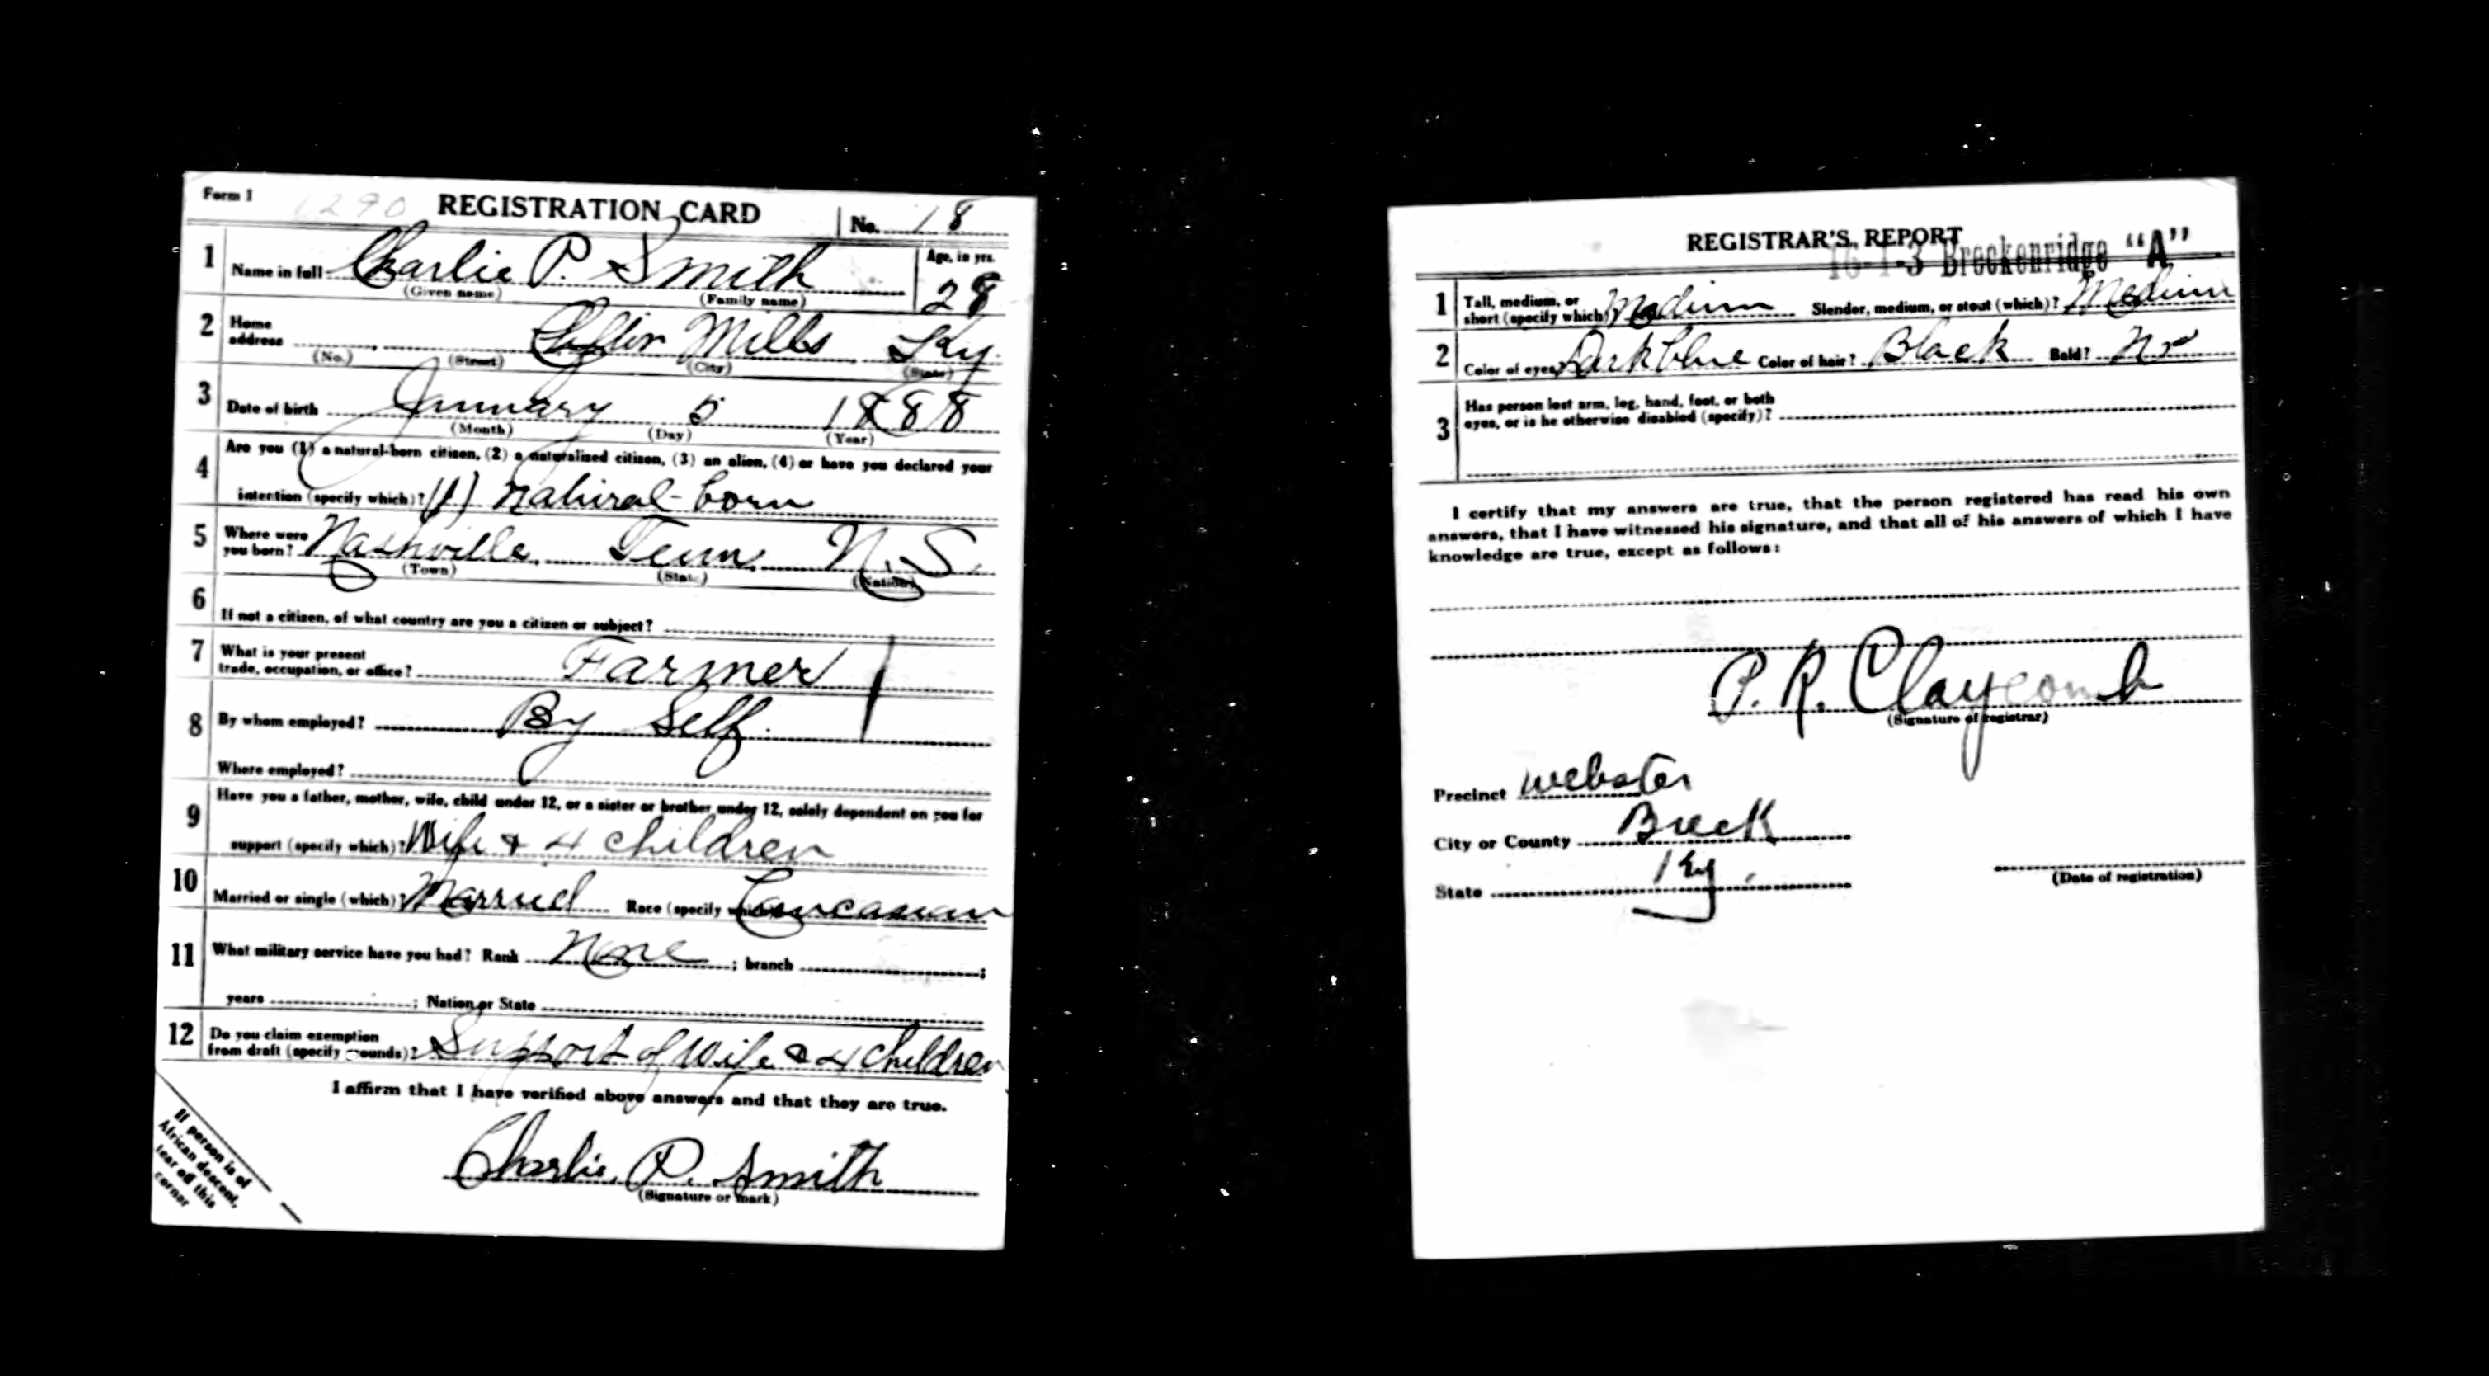 Form 1 1290 REGISTRATION CARD No. 18
1 Name in full Charlie P. Smith Age, in yrs.
(Given name) (Family name) 28
2 Home address Mills Ky.
(No.) (Street) (City) (State)
3 Date of birth January 5 1888
(Month) (Day) (Year)
4 Are you (1) a natural-born citizen, (2) a naturalized citizen, (3) an alien, (4) or have you declared your
intention (specify which)? (1) Natural-born
5 Where were you born? Nashville, Tenn. N.S.
(Town) (State) (Nation)
6 If not a citizen, of what country are you a citizen or subject?
7 What is your present
trade, occupation, or office? Farmer
8 By whom employed? By Self.
Where employed?
9 Have you a father, mother, wife, child under 12, or a sister or brother under 12, solely dependent on you for
support (specify which)? Wife & 4 children
10 Married or single (which)? Married Race (specify which)? Caucasian
11 What military service have you had? Rank None ; branch ;
years ; Nation or State
12 Do you claim exemption
from draft (specify grounds)? Support of Wife & 4 Children
I affirm that I have verified above answers and that they are true.
Charlie P. Smith
(Signature or mark)
If person is of
African descent,
tear off this
corner
REGISTRAR'S REPORT
16-1-3 Breckenridge "A"
1 Tall, medium, or
short (specify which)? Medium Slender, medium, or stout (which)? Medium
2 Color of eyes? Dark blue Color of hair? Black Bald? No
3 Has person lost arm, leg, hand, foot, or both
eyes, or is he otherwise disabled (specify)?
I certify that my answers are true, that the person registered has read his own
answers, that I have witnessed his signature, and that all of his answers of which I have
knowledge are true, except as follows:
P. R. Claycomb
(Signature of registrar)
Precinct Webster
City or County Breck
State Ky.
(Date of registration)